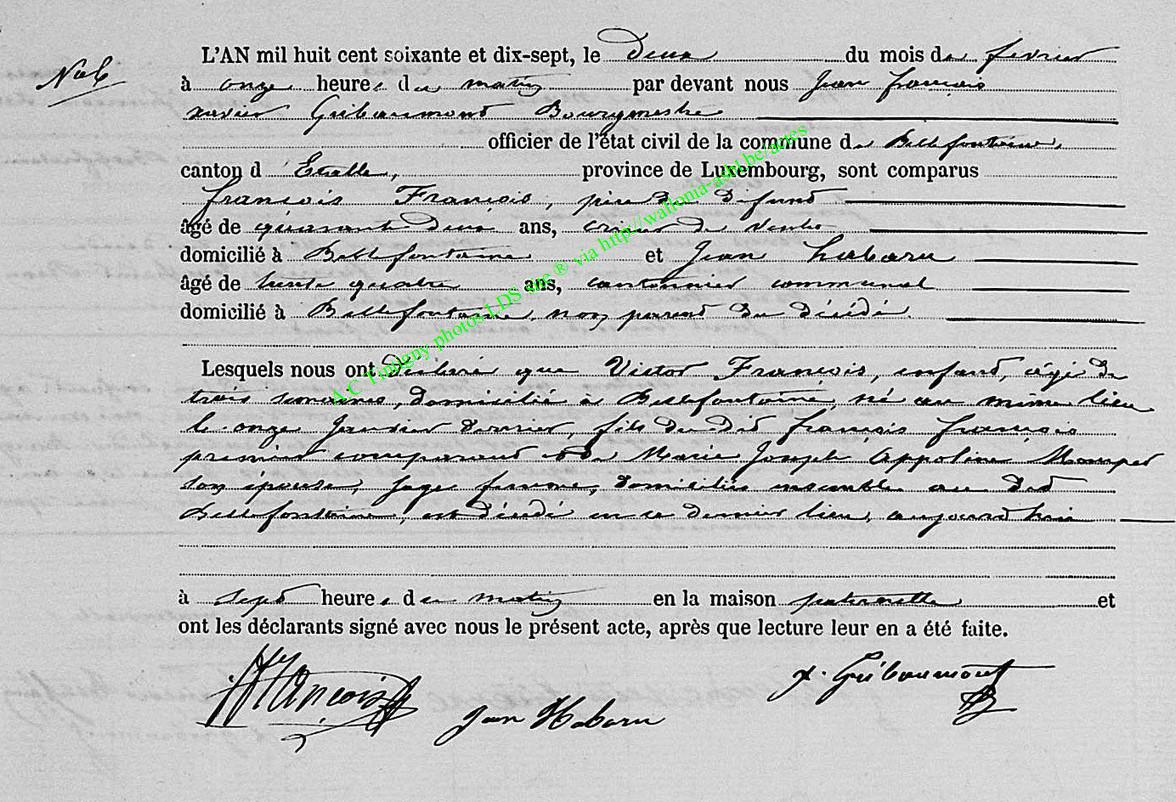 N° 6
L'AN mil huit cent soixante et dix-sept, le Deux du mois de février
à onze heures du matin par devant nous Jean françois
xavier Gribaumont Bourgmestre
officier de l'état civil de la commune de Bellefontaine
canton d'Etalle, province de Luxembourg, sont comparus
françois François, père du défunt
âgé de quarante deux ans, crieur de ventes
domicilié à Bellefontaine et Jean Habaru
âgé de trente quatre ans, cantonnier communal
domicilié à Bellefontaine, non parent du décédé
Lesquels nous ont déclaré que Victor François, enfant, âgé de
trois semaines, domicilié à Bellefontaine, né au même lieu
le onze Janvier dernier, fils du dit françois françois
premier comparant et de Marie Joseph Appoline
son épouse, sage femme, domiciliés ensemble au dit
Bellefontaine, est décédé en ce dernier lieu, aujourd'hui
à sept heures du matin en la maison paternelle et
ont les déclarants signé avec nous le présent acte, après que lecture leur en a été faite.
François Jean Habaru x. Gribaumont
A.C Tintigny photos LDS inc ® via http://wallonia-asbl.be/actes